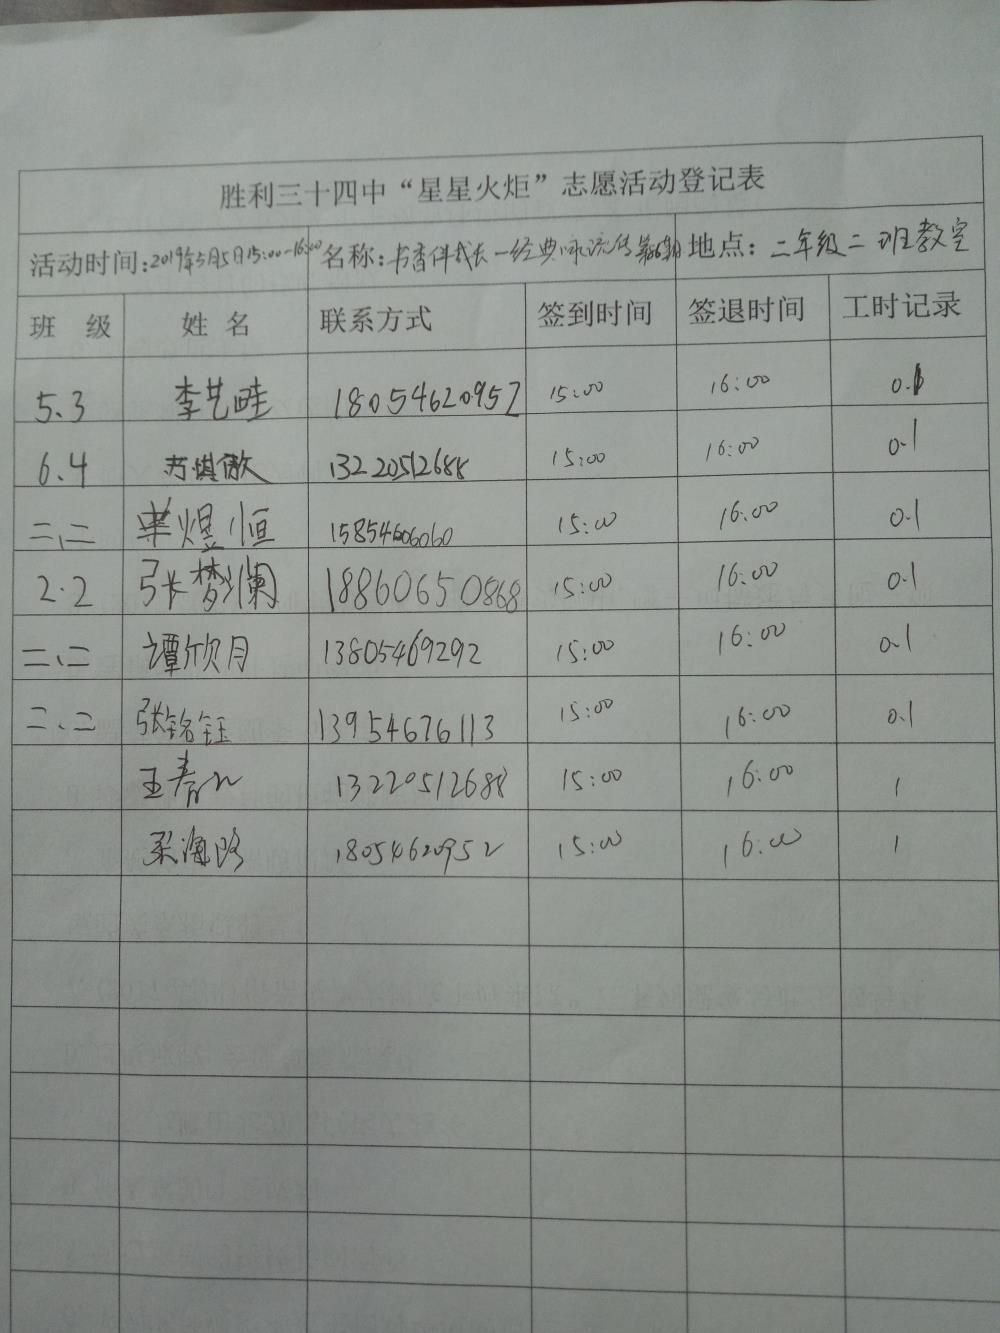 胜利三十四中“星星火炬”志愿活动登记表
活动时间:2019年5月5日15:00-16:00 名称:书香伴我长—经典咏流传 地点:二年级二班教室
班 级 姓 名 联系方式 签到时间 签退时间 工时记录
5.3 李艺畦 18054620952 15:00 16:00 0.1
6.4 苏淇傲 13220512688 15:00 16:00 0.1
二、二 煜恒 15854606060 15:00 16:00 0.1
2.2 张梦澜 18860650868 15:00 16:00 0.1
二、二 谭欣月 13805469292 15:00 16:00 0.1
二、二 张铭钰 13954676113 15:00 16:00 0.1
王春 13220512688 15:00 16:00 1
梁海路 18054620952 15:00 16:00 1